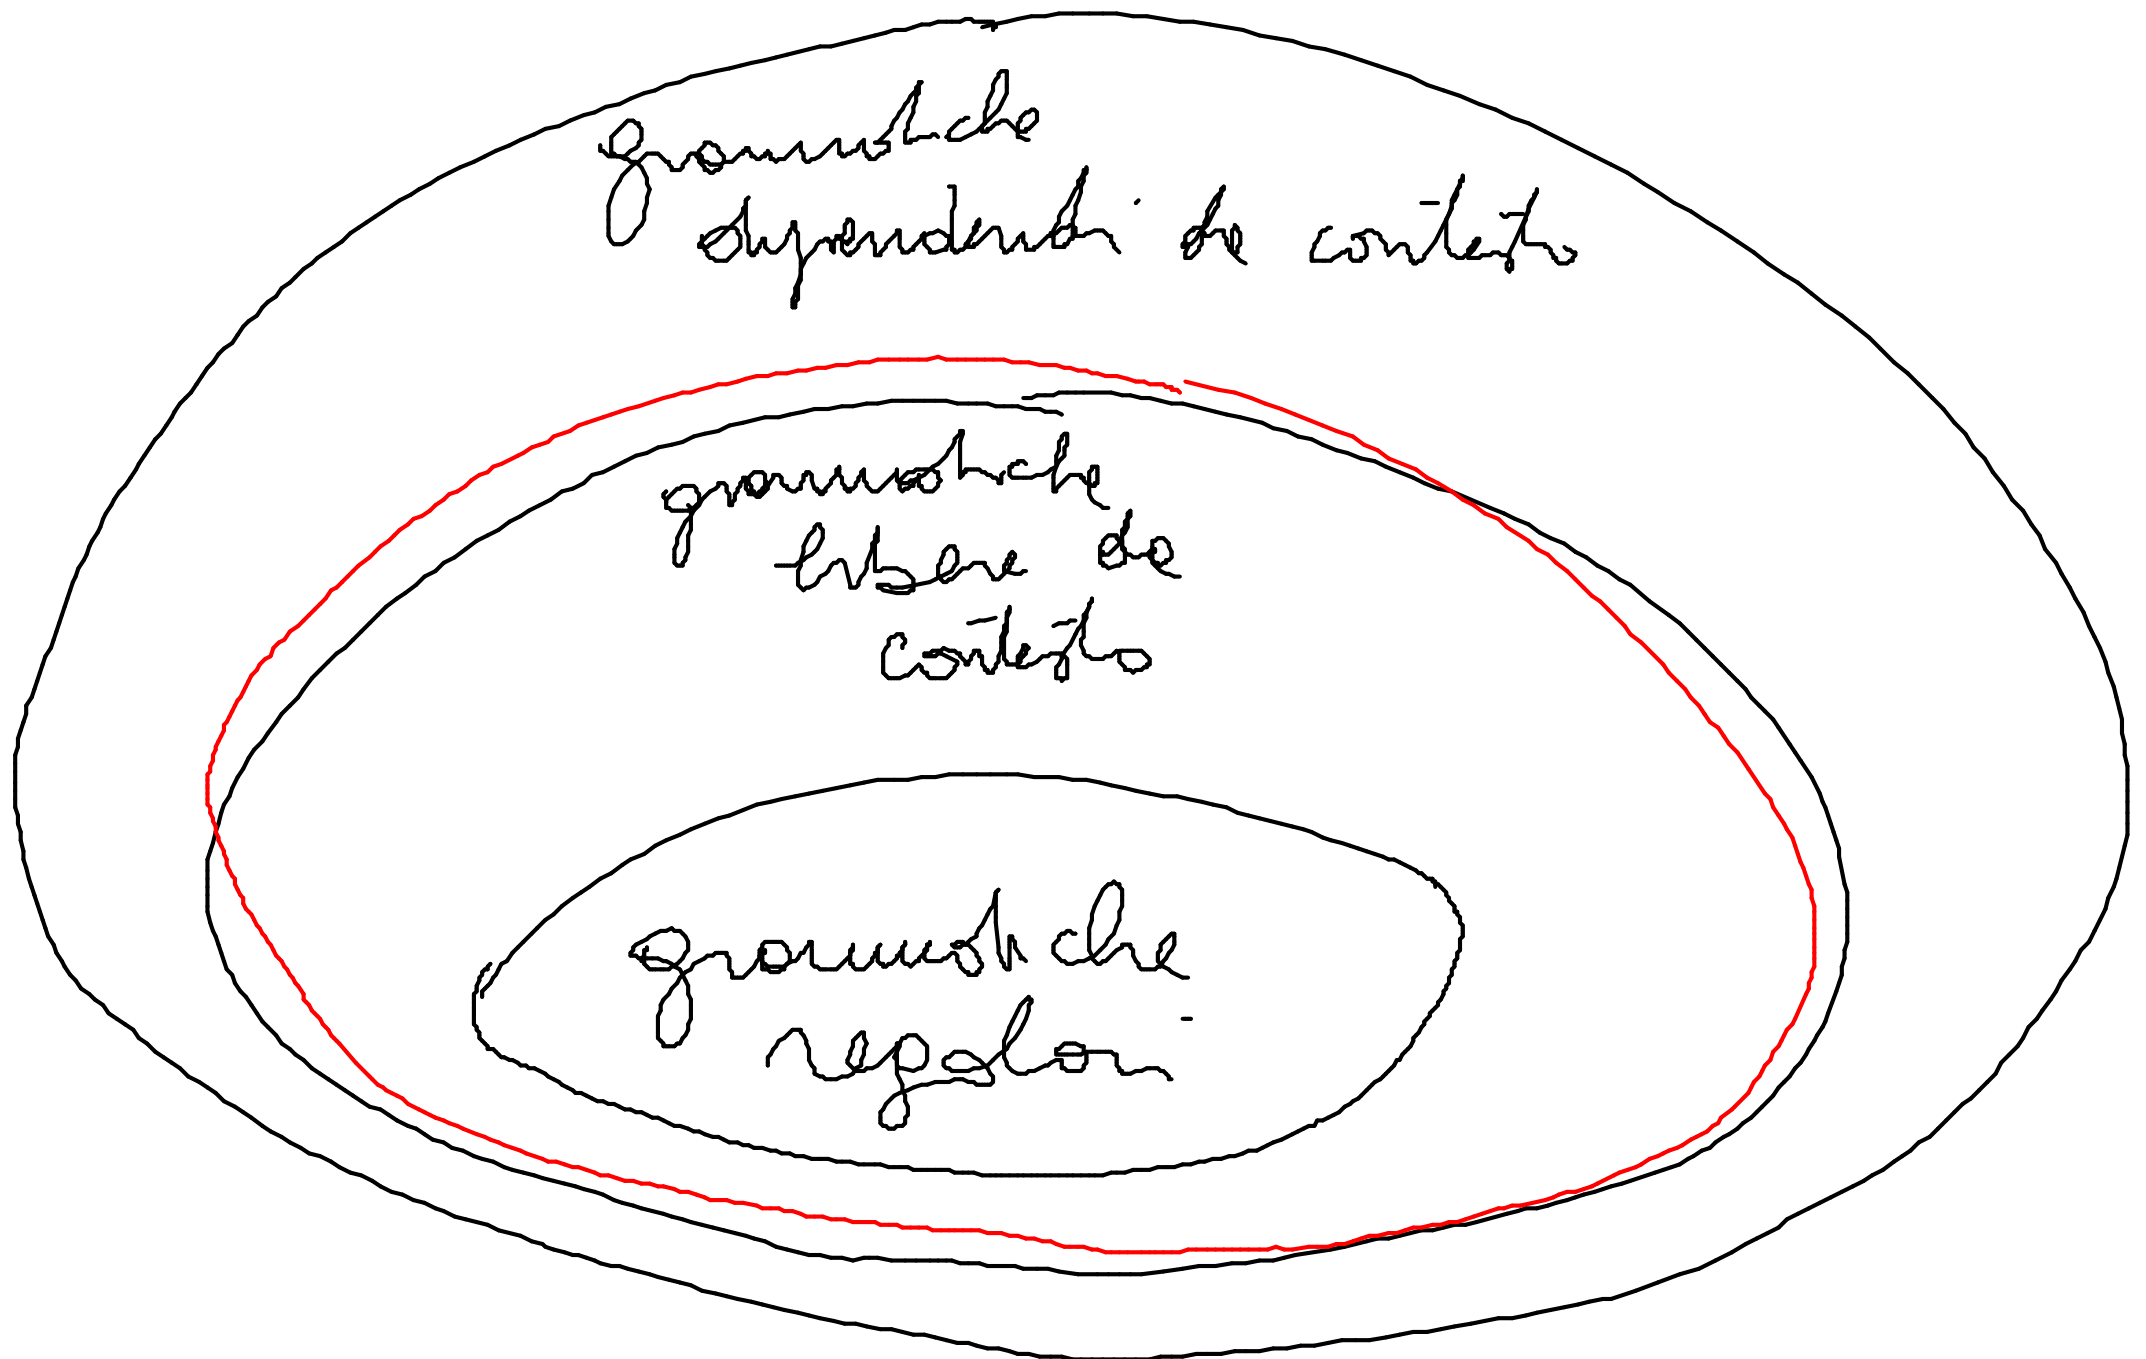 grammatiche
dipendenti da contesto
grammatiche
libere da
contesto
grammatiche
regolari